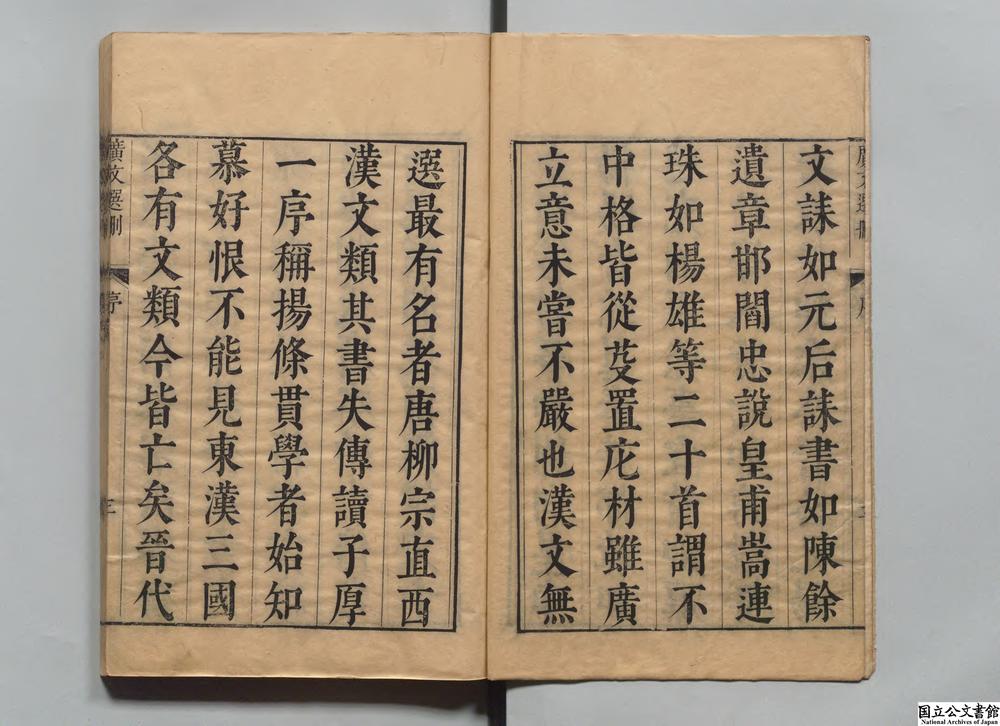 廣文選刪
序
文誄如元后誄書如陳餘
遺章邯閻忠說皇甫嵩連
珠如楊雄等二十首謂不
中格皆從芟置庀材雖廣
立意未嘗不嚴也漢文無
選最有名者唐柳宗直西
漢文類其書失傳讀子厚
一序稱揚條貫學者始知
慕好恨不能見東漢三國
各有文類今皆亡矣晉代
廣文選刪
序
三
国立公文書館
National Archives of Japan